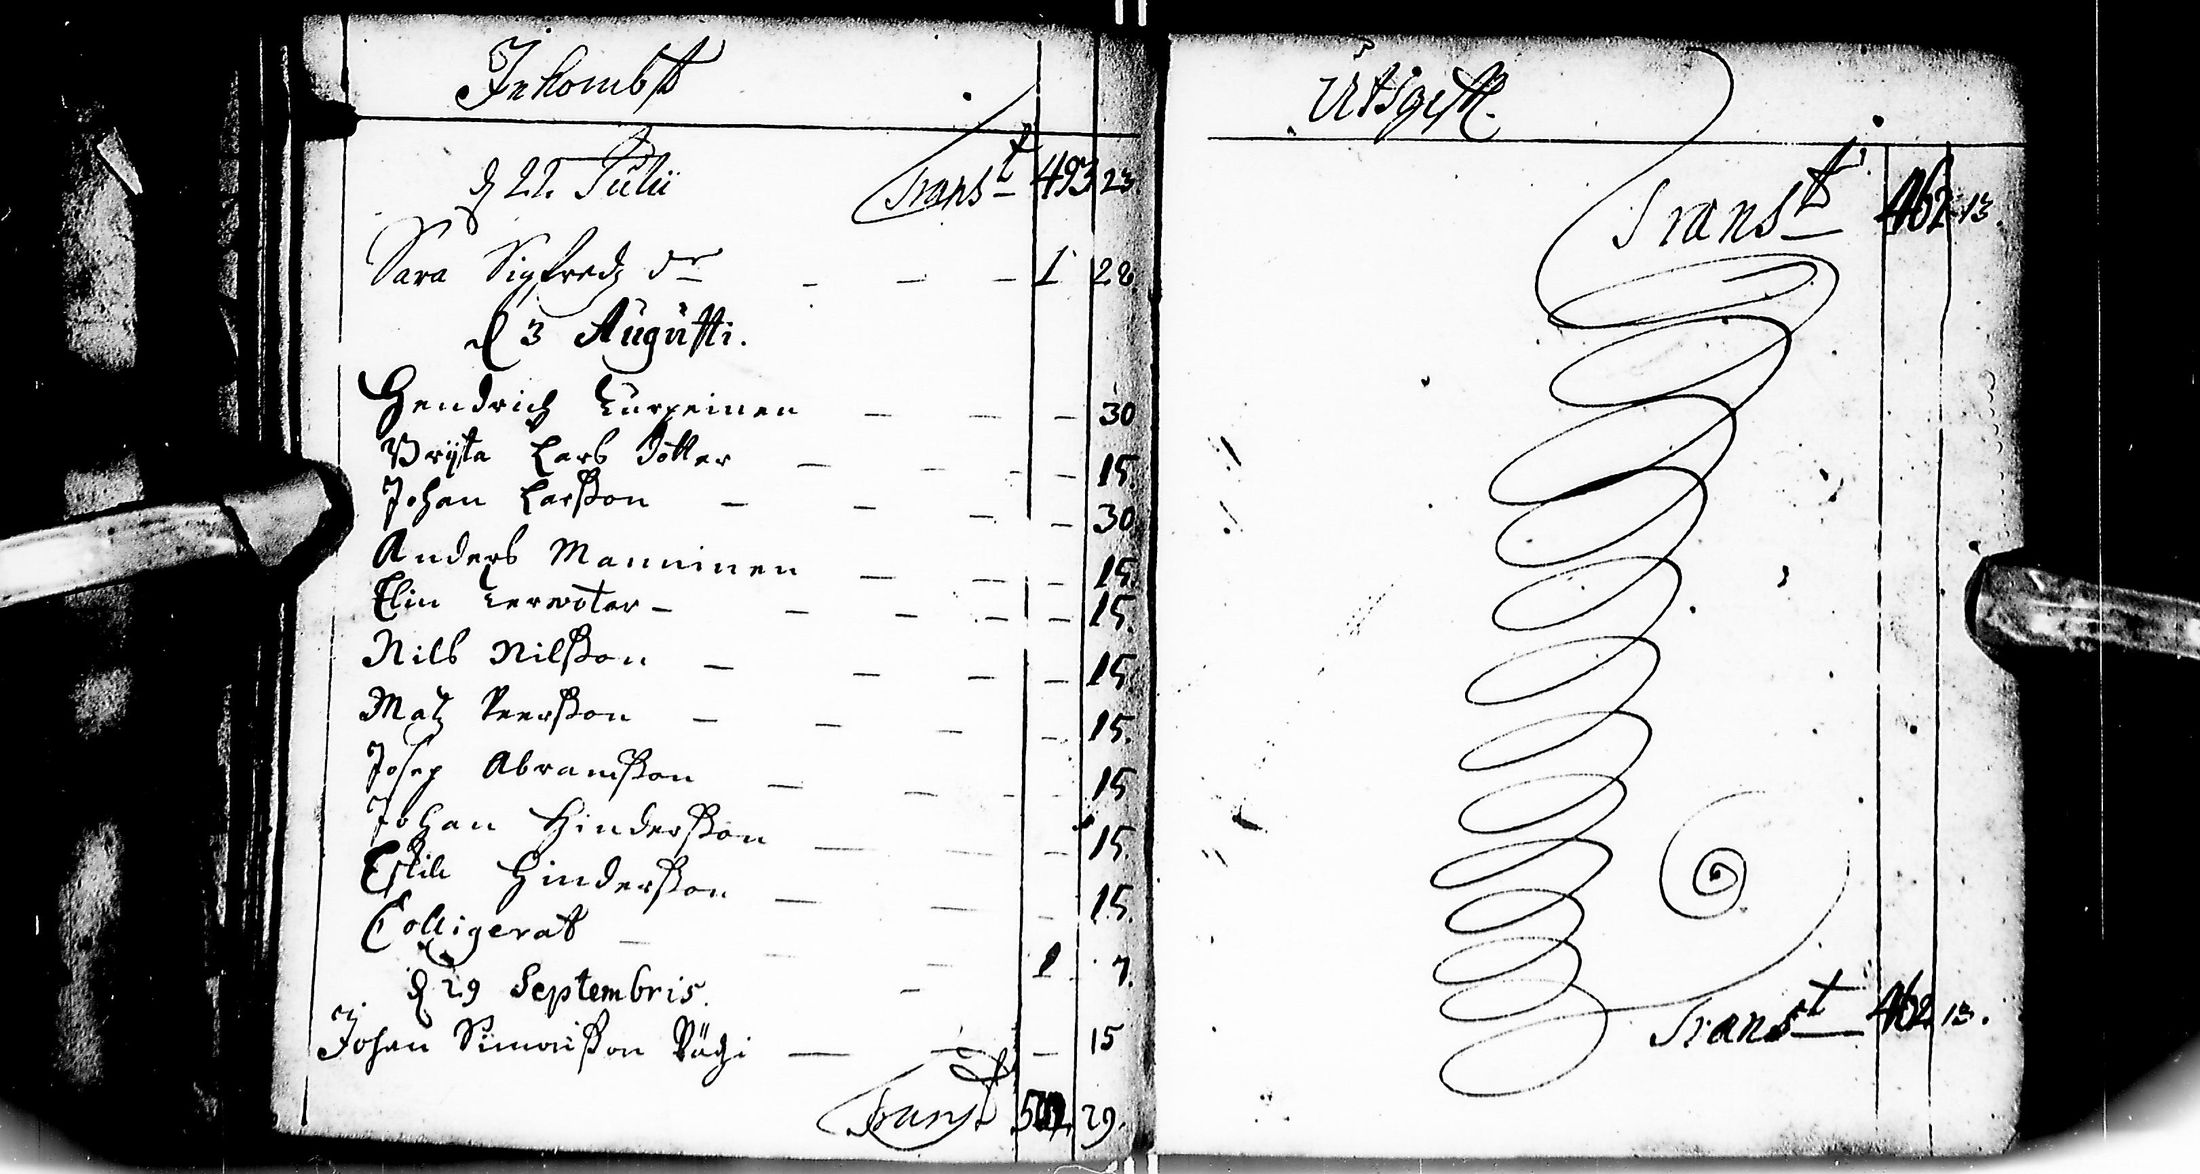 Inkombst
d 22. Julii Transt 493 23
Sara Sigfredz dr 1 28.
d 3 Augusti.
Hendrich 30
Brijta Lars dotter 15
Johan Larsson 30
Anders Manninen 15.
Elin 15.
Nils Nilsson 15.
Matz Peersson 15.
Josep Abramsson 15
Johan Hindersson 15.
Eskill Hindersson 15.
Colligerat 1 7.
d 29 Septembris.
Johan Simonsson 15
Transt 29.
Utsgifft.
Transt 462 13.
Transt 462 13.